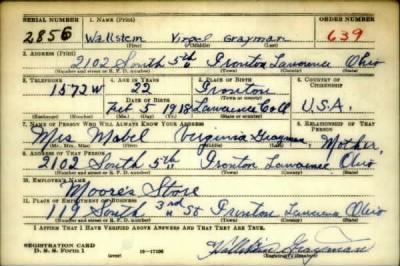 SERIAL NUMBER 1. NAME (Print) ORDER NUMBER
2856 Wallstein Virgel Grayman 639
(First) (Middle) (Last)
2. ADDRESS (Print)
2102 South 5th Ironton Lawrence Ohio
(Number and street or R. F. D. number) (Town) (County) (State)
3. TELEPHONE 4. AGE IN YEARS 5. PLACE OF BIRTH 6. COUNTRY OF CITIZENSHIP
1572W 22 Ironton
DATE OF BIRTH (Town or county)
5 1918 Lawrence Co O U.S.A.
(Mo.) (Day) (Yr.) (State or country)
7. NAME OF PERSON WHO WILL ALWAYS KNOW YOUR ADDRESS 8. RELATIONSHIP OF THAT PERSON
Mrs Mabel Virginia Grayman Mother
(Mr., Mrs., Miss) (First) (Middle) (Last)
9. ADDRESS OF THAT PERSON
2102 South 5th Ironton Lawrence Ohio
(Number and street or R. F. D. number) (Town) (County) (State)
10. EMPLOYER'S NAME
Moore's Store
11. PLACE OF EMPLOYMENT OR BUSINESS
119 South 3rd St Ironton Lawrence Ohio
(Number and street or R. F. D. number) (Town) (County) (State)
I AFFIRM THAT I HAVE VERIFIED ABOVE ANSWERS AND THAT THEY ARE TRUE.
REGISTRATION CARD
D. S. S. Form 1 Wallstein Grayman
(Registrant's signature)